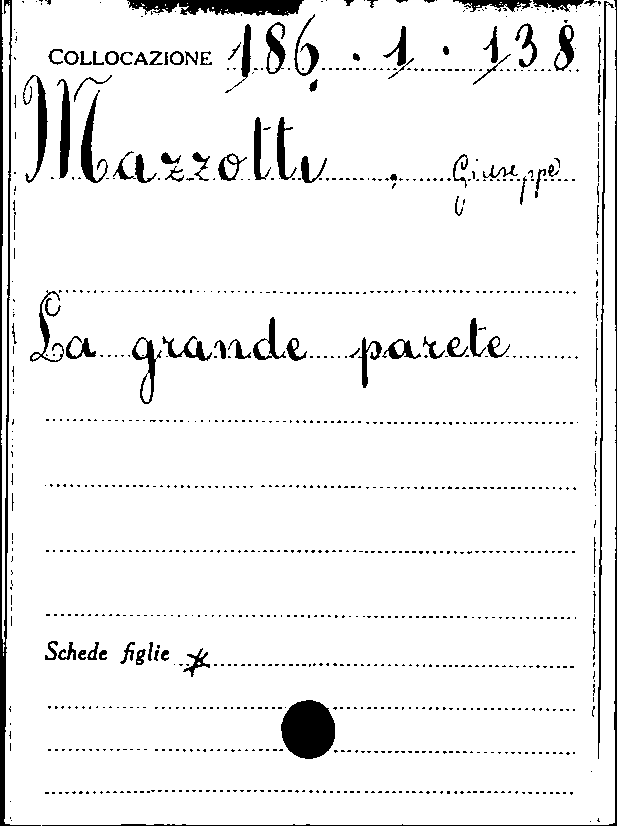 COLLOCAZIONE 186.1.138
Mazzotti, Giuseppe
La grande parete
Schede figlie *